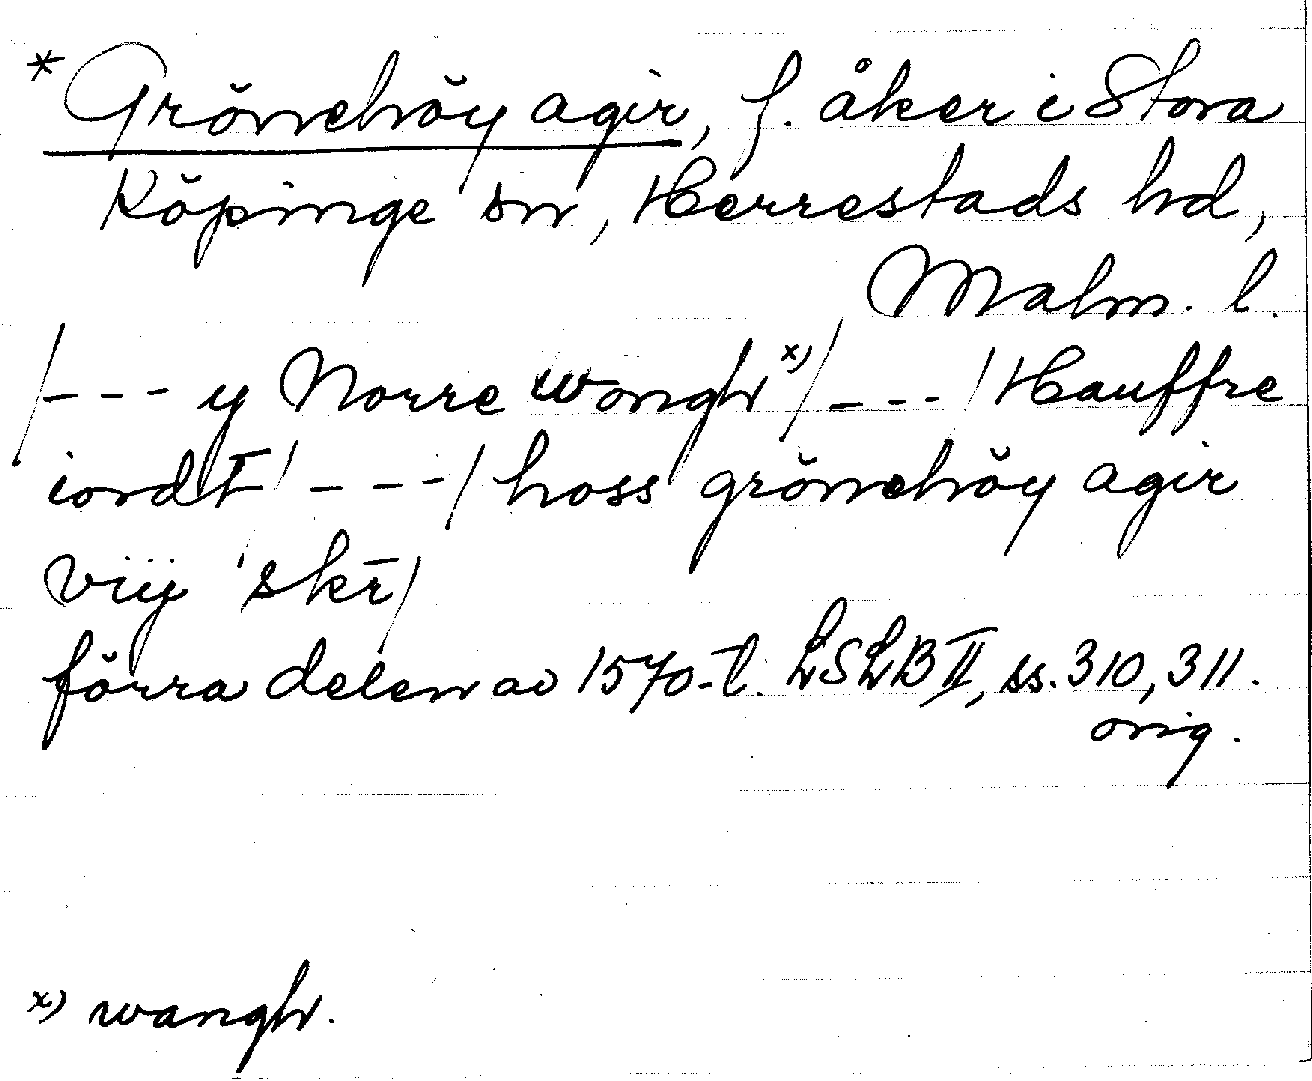 * Grönehöy agir, f. åker i Stora
Köpinge sn, Herrestads hd,
Malm. l.
/--- y Norre wongh x)/ ---/ Hauffre
iordt/ ---/ hoss grönehöy agir
viij skr/
förra delen av 1570-t. LSLB II, ss. 310, 311.
orig.
x) wangh.